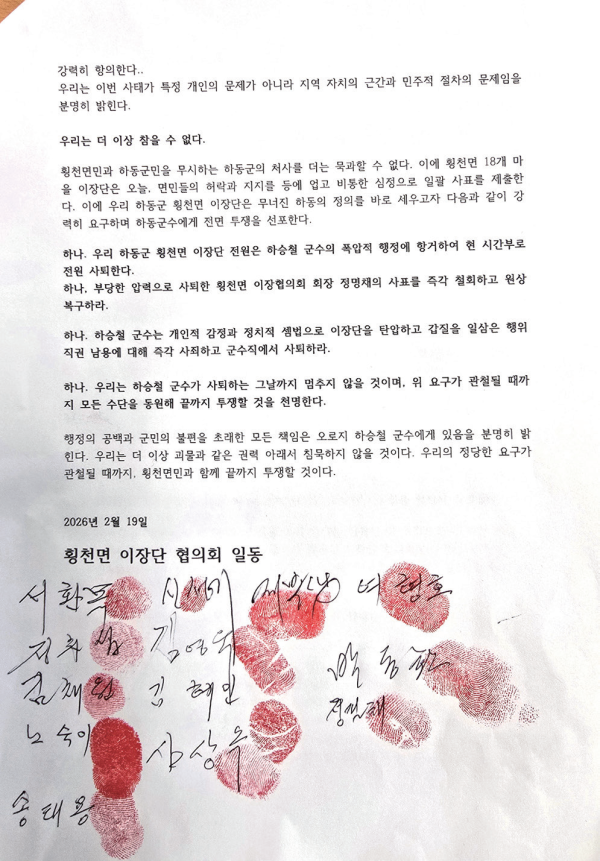 강력히 항의한다..
우리는 이번 사태가 특정 개인의 문제가 아니라 지역 자치의 근간과 민주적 절차의 문제임을
분명히 밝힌다.
우리는 더 이상 참을 수 없다.
횡천면민과 하동군민을 무시하는 하동군의 처사를 더는 묵과할 수 없다. 이에 횡천면 18개 마
을 이장단은 오늘, 면민들의 허락과 지지를 등에 업고 비통한 심정으로 일괄 사표를 제출한
다. 이에 우리 하동군 횡천면 이장단은 무너진 하동의 정의를 바로 세우고자 다음과 같이 강
력히 요구하며 하동군수에게 전면 투쟁을 선포한다.
하나. 우리 하동군 횡천면 이장단 전원은 하승철 군수의 폭압적 행정에 항거하여 현 시간부로
전원 사퇴한다.
하나, 부당한 압력으로 사퇴한 횡천면 이장협의회 회장 정명채의 사표를 즉각 철회하고 원상
복구하라.
하나. 하승철 군수는 개인적 감정과 정치적 셈법으로 이장단을 탄압하고 갑질을 일삼은 행위
직권 남용에 대해 즉각 사죄하고 군수직에서 사퇴하라.
하나. 우리는 하승철 군수가 사퇴하는 그날까지 멈추지 않을 것이며, 위 요구가 관철될 때까
지 모든 수단을 동원해 끝까지 투쟁할 것을 천명한다.
행정의 공백과 군민의 불편을 초래한 모든 책임은 오로지 하승철 군수에게 있음을 분명히 밝
힌다. 우리는 더 이상 괴물과 같은 권력 아래서 침묵하지 않을 것이다. 우리의 정당한 요구가
관철될 때까지, 횡천면민과 함께 끝까지 투쟁할 것이다.
2026년 2월 19일
횡천면 이장단 협의회 일동
김 혜 인
노 숙 이
송 태 용